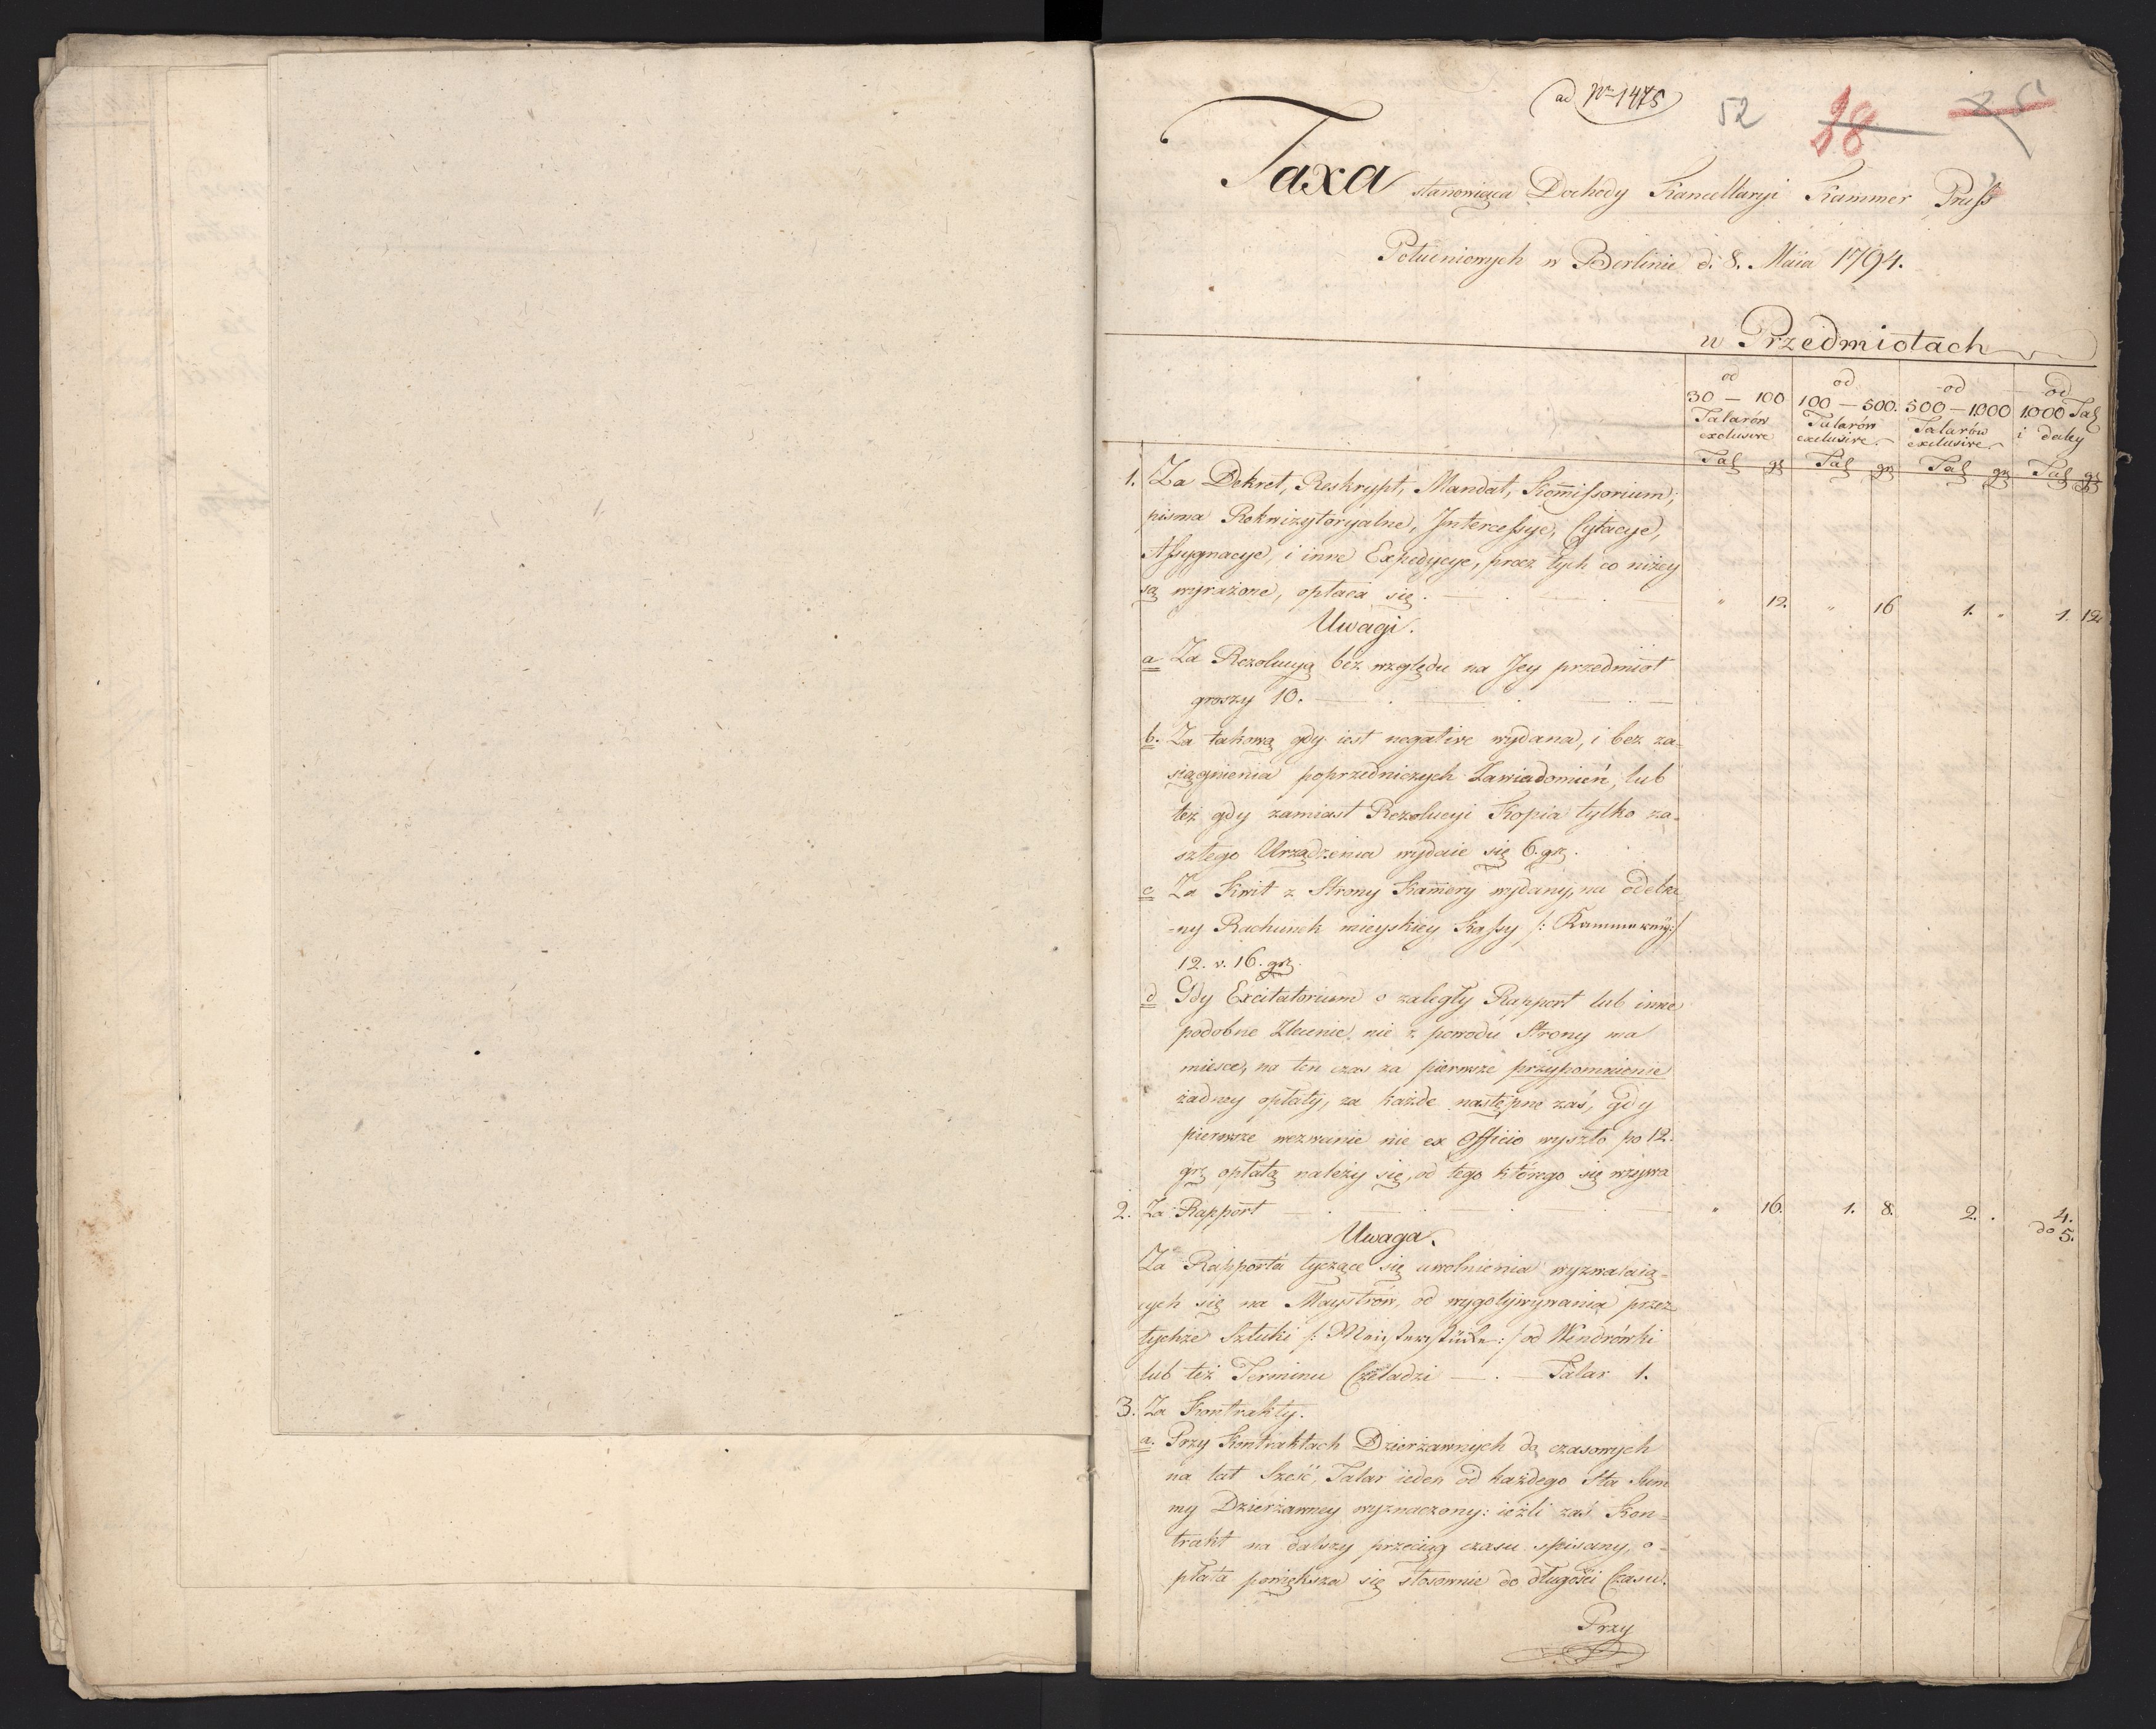 ad Nro 1475
52 28 25
Taxa stanowiąca Dochody Kancellaryi Kammer Pruss
Południowych w Berlinie d. 8. Maia 1794.
w Przedmiotach
od 30 — 100 Talarów exclusive
od 100 — 500. Talarów exclusive
od 500 — 1000 Talarów exclusive
od 1000 Tal i daley
Tal gr Tal gr Tal gr Tal gr
1. Za Dekret, Reskrypt, Mandat, Kom̄issorium;
pisma Rekwizytoryalne, Intercessye, Cytacye,
Assygnacye, i inne Expedycye, procz tych co niżey
są wyrażone, opłaca się . — . — " 12. " 16 1. " 1. 12
Uwagi.
a Za Rezolucyą bez względu na Jey przedmiot
groszy 10. — . — . — . —
b. Za takową gdy iest negative wydana, i bez za-
siągnienia poprzedniczych Zawiadomień, lub
też gdy zamiast Rezolucyi Kopia tylko za-
szłego Urządzenia wydaie się 6. gr.
c Za Kwit z Strony Kam̄ery wydany, na odebra
-ny Rachunek mieyskiey Kassy /: :/
12. v. 16. gr.
d Gdy Excitatorium o zaległy Rapport lub inne
podobne Zlecenie nie z powodu Strony ma
miesce, na ten czas za pierwsze przypomnienie
żadney opłaty, za każde następne zaś, gdy
pierwsze wezwanie nie ex Officio wyszło po 12.
gr opłatą należy się, od tego którego się wzywa
2. Za Rapport — . — . — " 16. 1. 8. 2. . 4. do 5.
Uwaga.
Za Rapporta tyczące się uwolnienia wyzwalaią-
cych się na Maystrów, od wygotywywania przez
tychże Sztuki /: Meisterstücke :/ od Wendrówki
lub też Terminu Czeladzi — . — Talar 1.
3. Za Kontrakty.
a. Przy Kontraktach Dzierżawnych do czasowych
na lat Sześć, Talar ieden od każdego Sta Sum
my Dzierżawney wyznaczony: ieżli zaś Kon-
trakt na dalszy przeciąg czasu spisany, o-
płata powiększa się stosownie do długości Czasu.
Przy